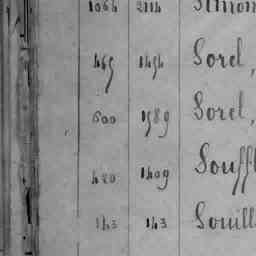 1064 2114 Simon
465 1454 Sorel,
600 1589 Sorel,
420 1409 Souffl
143 143 Souill